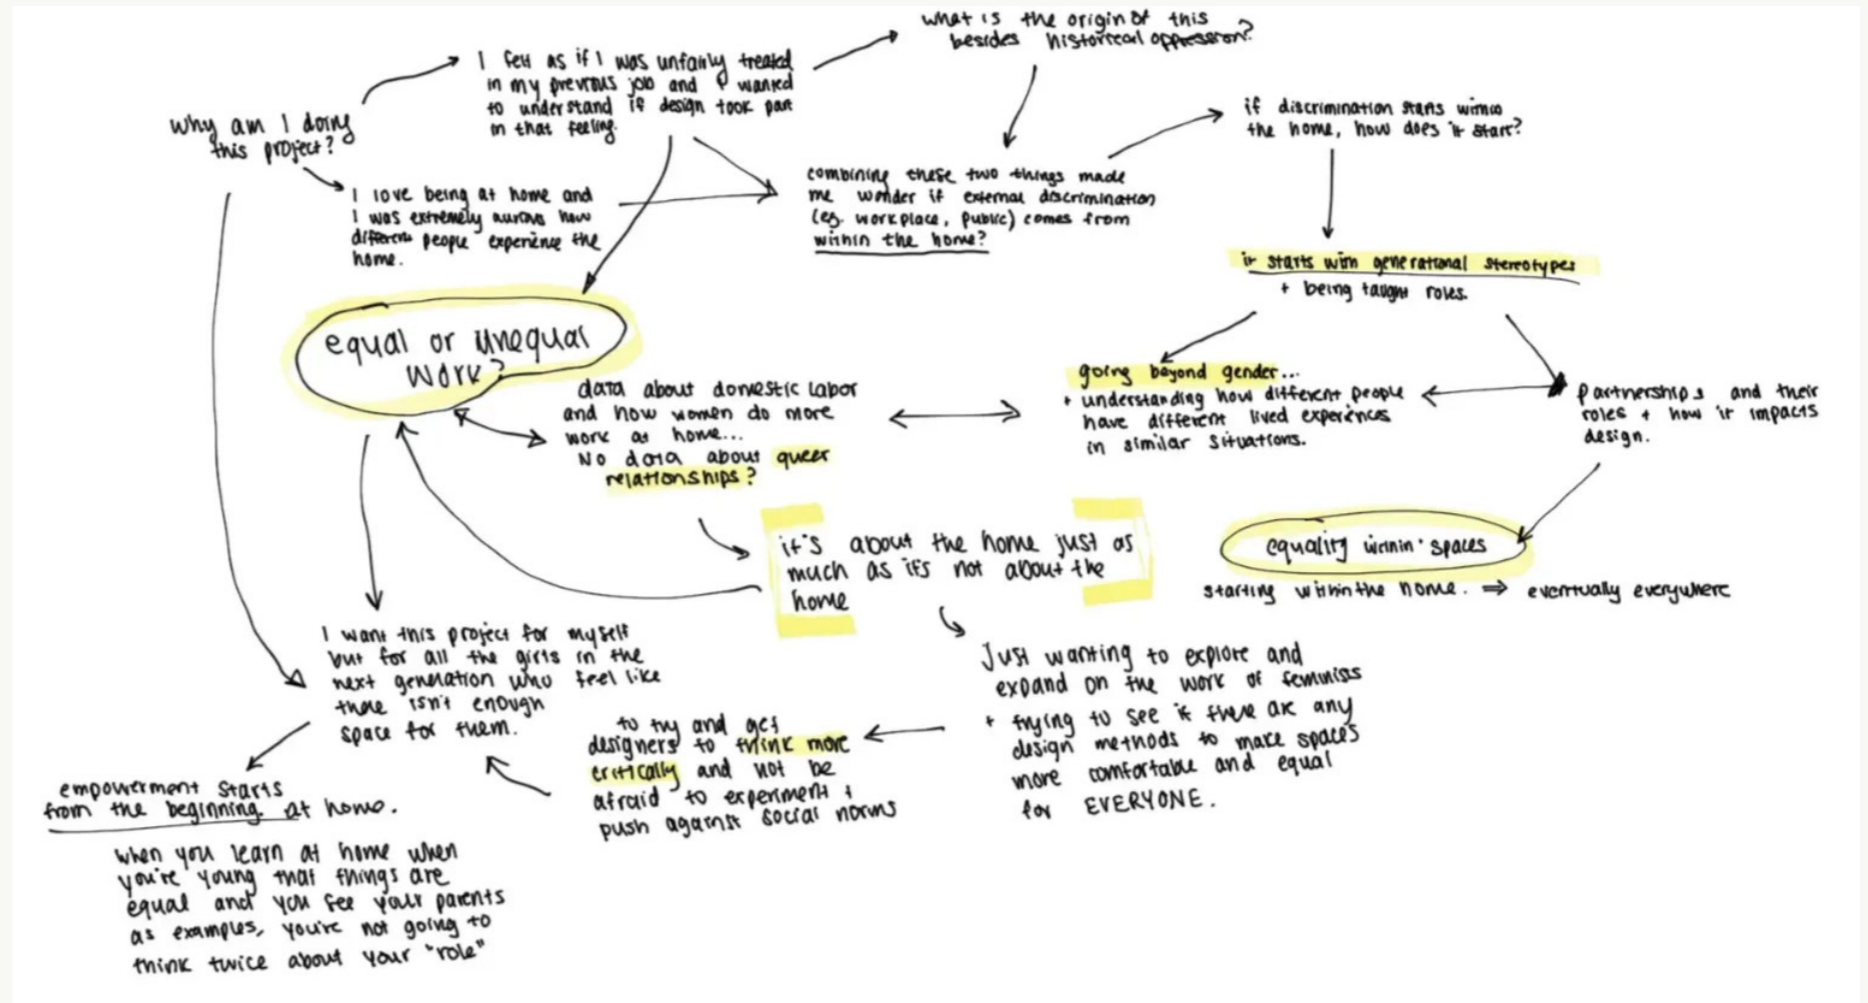 what is the origin of this
besides historical oppression?
I felt as if I was unfairly treated
in my previous job and I wanted
to understand if design took part
in that feeling.
why am I doing
this project?
if discrimination starts within
the home, how does it start?
I love being at home and
I was extremely how
different people experience the
home.
combining these two things made
me wonder if external discrimination
(eg. workplace, public) comes from
within the home?
it starts with generational stereotypes
+ being taught roles.
equal or unequal
work?
data about domestic labor
and how women do more
work at home...
No data about queer
relationships?
going beyond gender...
+ understanding how different people
have different lived experiences
in similar situations.
partnerships and their
roles + how it impacts
design.
it's about the home just as
much as it's not about the
home
equality within spaces
starting within the home. ⇒ eventually everywhere
I want this project for myself
but for all the girls in the
next generation who feel like
there isn't enough
space for them.
Just wanting to explore and
expand on the work of feminists
+ trying to see if there are any
design methods to make spaces
more comfortable and equal
for EVERYONE.
to try and get
designers to think more
critically and not be
afraid to experiment +
push against social norms
empowerment starts
from the beginning. at home.
when you learn at home when
you're young that things are
equal and you see your parents
as examples, you're not going to
think twice about your "role"